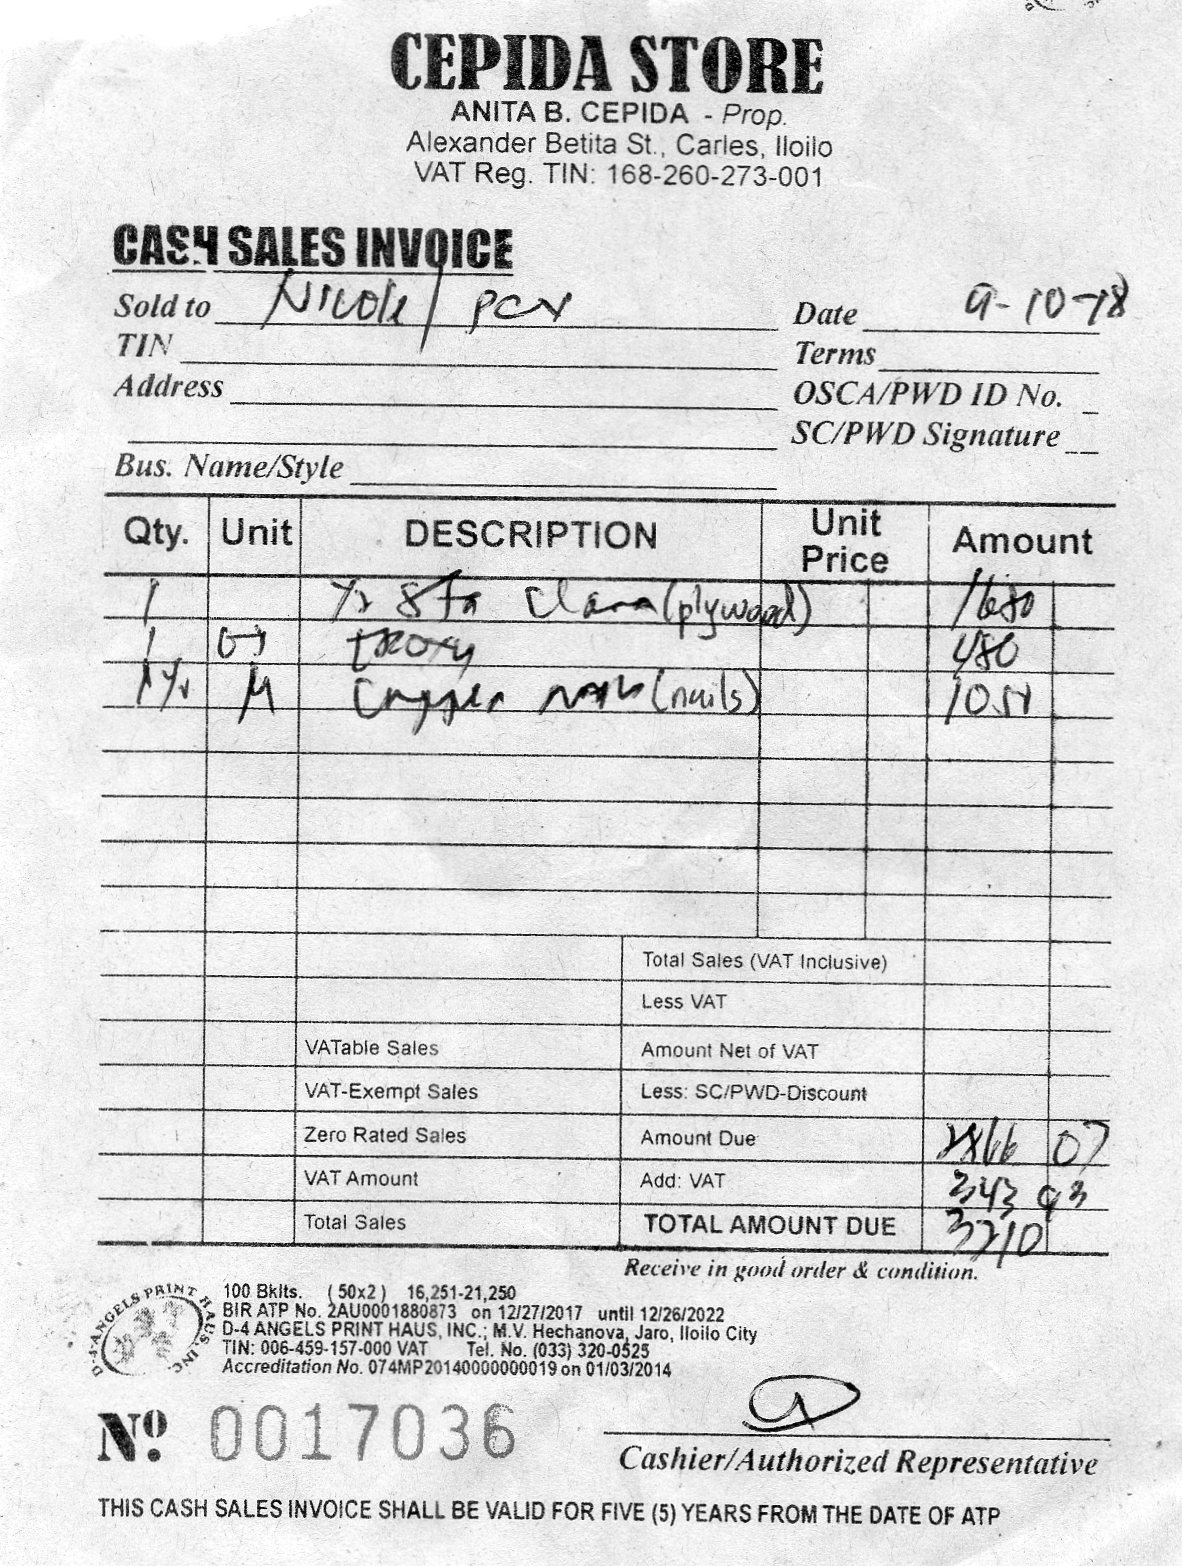 CEPIDA STORE
ANITA B. CEPIDA - Prop.
Alexander Betita St., Carles, Iloilo
VAT Reg. TIN: 168-260-273-001
CASH SALES INVOICE
Sold to Nicole / PCV
Date 9-10-18
TIN
Terms
Address
OSCA/PWD ID No.
SC/PWD Signature
Bus. Name/Style
Qty. Unit DESCRIPTION Unit Price Amount
1 (plywood) 1680
1 Epoxy 480
Copper (nails) 1050
Total Sales (VAT Inclusive)
Less VAT
VATable Sales Amount Net of VAT
VAT-Exempt Sales Less: SC/PWD-Discount
Zero Rated Sales Amount Due 2866 07
VAT Amount Add: VAT 343 93
Total Sales TOTAL AMOUNT DUE 3210
Receive in good order & condition.
D-4 ANGELS PRINT HAUS, INC.
100 Bklts. (50x2) 16,251-21,250
BIR ATP No. 2AU0001880873 on 12/27/2017 until 12/26/2022
D-4 ANGELS PRINT HAUS, INC.; M.V. Hechanova, Jaro, Iloilo City
TIN: 006-459-157-000 VAT Tel. No. (033) 320-0525
Accreditation No. 074MP20140000000019 on 01/03/2014
No. 0017036
Cashier/Authorized Representative
THIS CASH SALES INVOICE SHALL BE VALID FOR FIVE (5) YEARS FROM THE DATE OF ATP